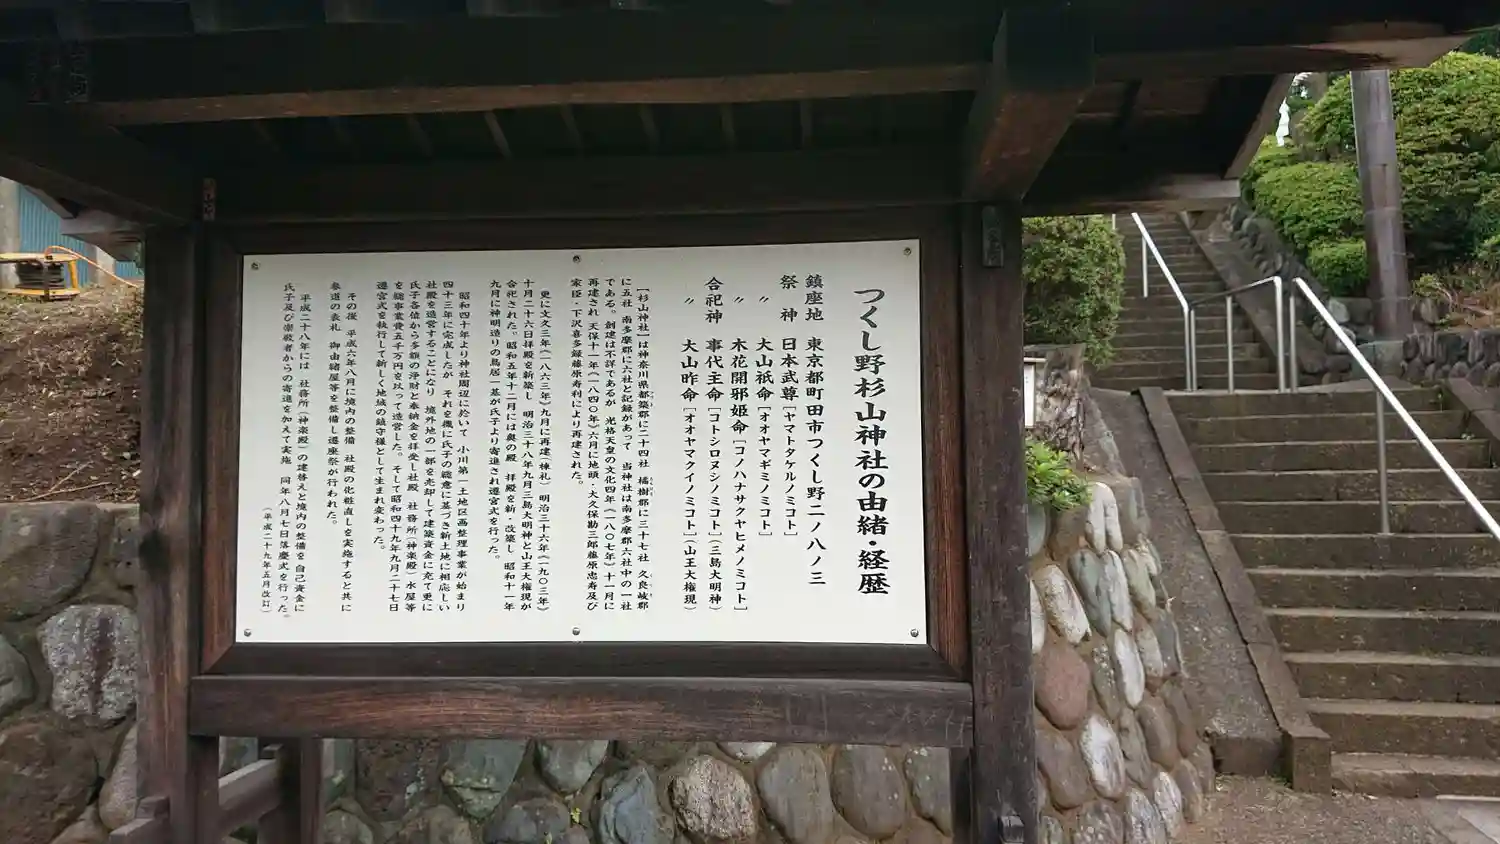 つくし野杉山神社の由緒・経歴
鎮座地 東京都町田市つくし野二ノ八ノ三
祭神 日本武尊[ヤマトタケルノミコト]
〃 大山祇命[オオヤマギミノミコト]
〃 木花開邪姫命[コノハナサクヤヒメノミコト]
合祀神 事代主命[コトシロヌシノミコト](三島大明神)
〃 大山昨命[オオヤマクイノミコト](山王大権現)
[杉山神社]は神奈川県都築郡に二十四社 橘樹郡に三十七社 久良岐郡
に五社 南多摩郡に六社と記録があって 当神社は南多摩郡六社中の一社
である。創建は不詳であるが 光格天皇の文化四年(一八〇七年)十一月に
再建され 天保十一年(一八四〇年)六月に地頭・大久保勘三郎藤原忠寿及び
家臣・下沢喜多録藤原寿利により再建された。
更に文久三年(一八六三年)九月に再建(棟札) 明治三十六年(一九〇三年)
十月二十六日拝殿を新築し 明治三十八年九月三島大明神と山王大権現が
合祀された。昭和五年十二月には奥の殿 拝殿を新・改築し 昭和十一年
九月に神明造りの鳥居一基が氏子より寄進され遷宮式を行った。
昭和四十年より神社周辺に於いて 小川第一土地区画整理事業が始まり
四十三年に完成したが それを機に氏子の総意に基づき新土地に相応しい
社殿を造営することになり 境外地の一部を売却して建築資金に充て更に
氏子各位から多額の浄財と奉納金を拝受し社殿 社務所(神楽殿)水屋等
を総事業費五千万円を以って造営した。そして昭和四十九年九月二十七日
遷宮式を執行して新しく地域の鎮守様として生まれ変わった。
その後 平成六年八月に境内の整備 社殿の化粧直しを実施すると共に
参道の表札 御由緒屋等を整備し遷座祭が行われた。
平成二十八年には 社務所(神楽殿)の建替えと境内の整備を自己資金に
氏子及び崇敬者からの寄進を加えて実施 同年八月七日落慶式を行った。
(平成二十九年五月改訂)